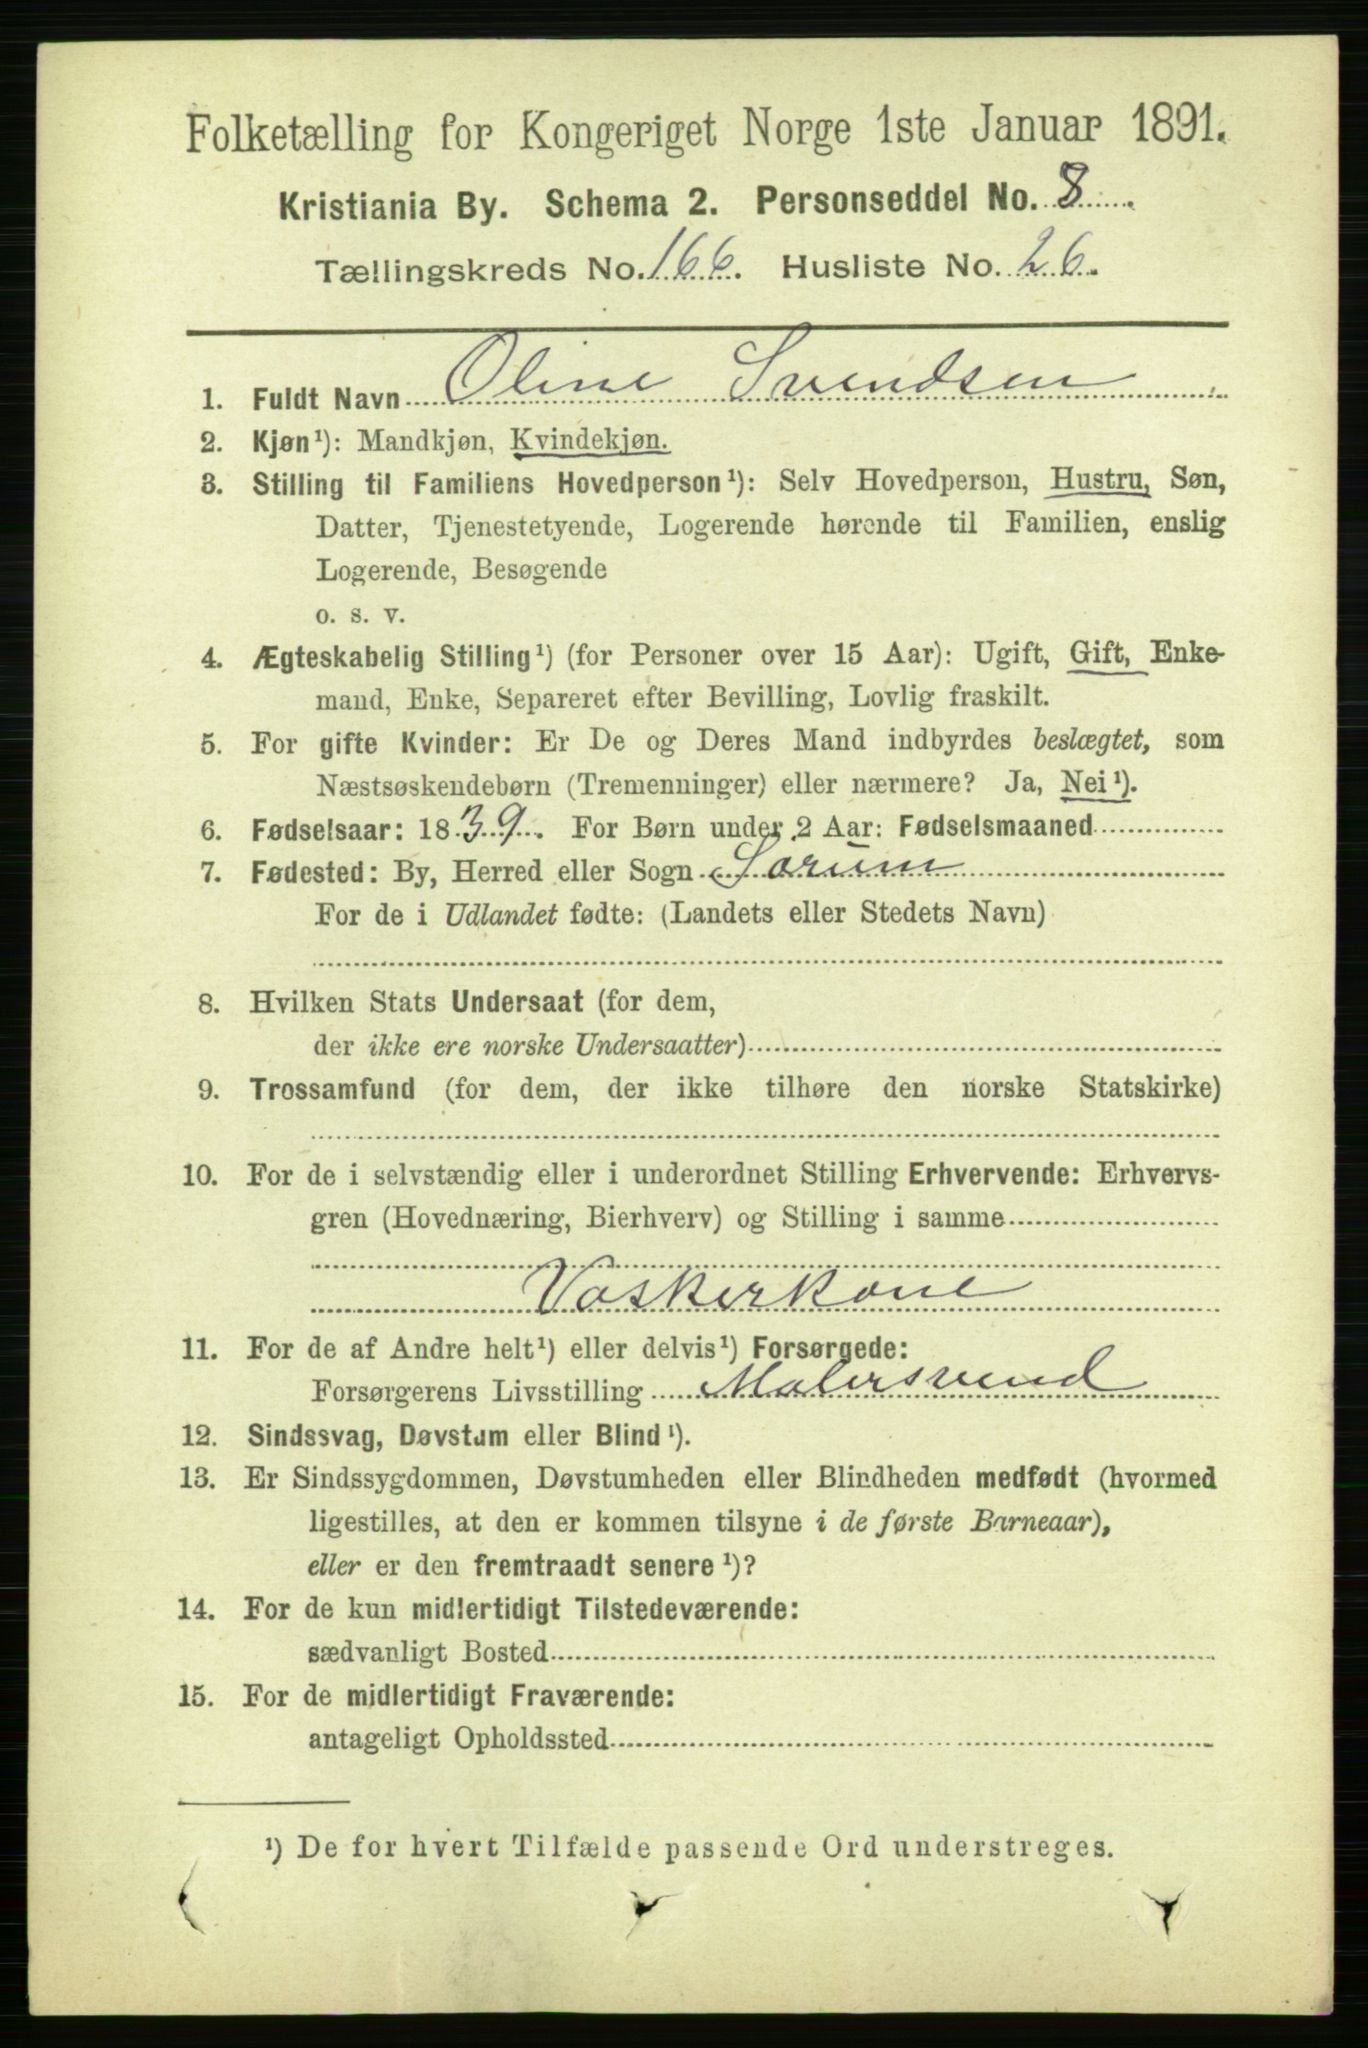 Folketælling for Kongeriget Norge 1ste Januar 1891.
Kristiania By. Schema 2. Personseddel No. 8.
Tællingskreds No. 166. Husliste No. 26.
1. Fuldt Navn Oline Svendsen
2. Kjøn¹): Mandkjøn, Kvindekjøn.
3. Stilling til Familiens Hovedperson¹): Selv Hovedperson, Hustru, Søn,
Datter, Tjenestetyende, Logerende hørende til Familien, enslig
Logerende, Besøgende
o. s. v.
4. Ægteskabelig Stilling¹) (for Personer over 15 Aar): Ugift, Gift, Enke-
mand, Enke, Separeret efter Bevilling, Lovlig fraskilt.
5. For gifte Kvinder: Er De og Deres Mand indbyrdes beslægtet, som
Næstsøskendebørn (Tremenninger) eller nærmere? Ja, Nei¹).
6. Fødselsaar: 1839. For Børn under 2 Aar: Fødselsmaaned
7. Fødested: By, Herred eller Sogn Sørum
For de i Udlandet fødte: (Landets eller Stedets Navn)
8. Hvilken Stats Undersaat (for dem,
der ikke ere norske Undersaatter)
9. Trossamfund (for dem, der ikke tilhøre den norske Statskirke)
10. For de i selvstændig eller i underordnet Stilling Erhvervende: Erhvervs-
gren (Hovednæring, Bierhverv) og Stilling i samme
Vaskerkone
11. For de af Andre helt¹) eller delvis¹) Forsørgede:
Forsørgerens Livsstilling Malersvend
12. Sindssvag, Døvstum eller Blind¹).
13. Er Sindssygdommen, Døvstumheden eller Blindheden medfødt (hvormed
ligestilles, at den er kommen tilsyne i de første Barneaar),
eller er den fremtraadt senere¹)?
14. For de kun midlertidigt Tilstedeværende:
sædvanligt Bosted
15. For de midlertidigt Fraværende:
antageligt Opholdssted
¹) De for hvert Tilfælde passende Ord understreges.